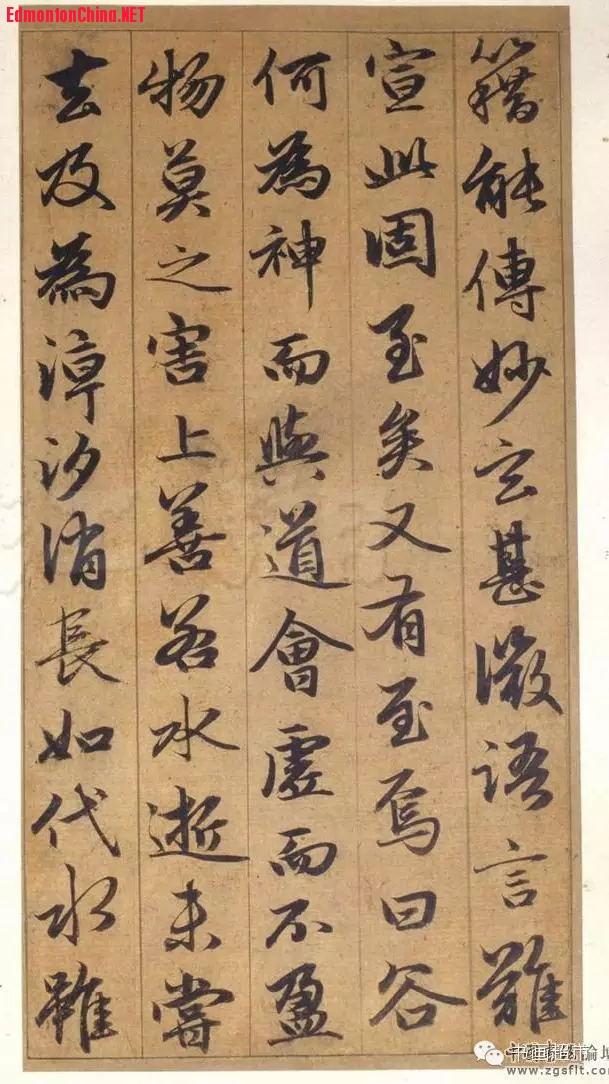 EdmontonChina.NET
籍能傳妙玄甚微語言難
宣此固至矣又有至焉曰谷
何為神而與道會虛而不盈
物莫之害上善若水逝未嘗
去及為汐消長如代水雖
www.zgsflt.com